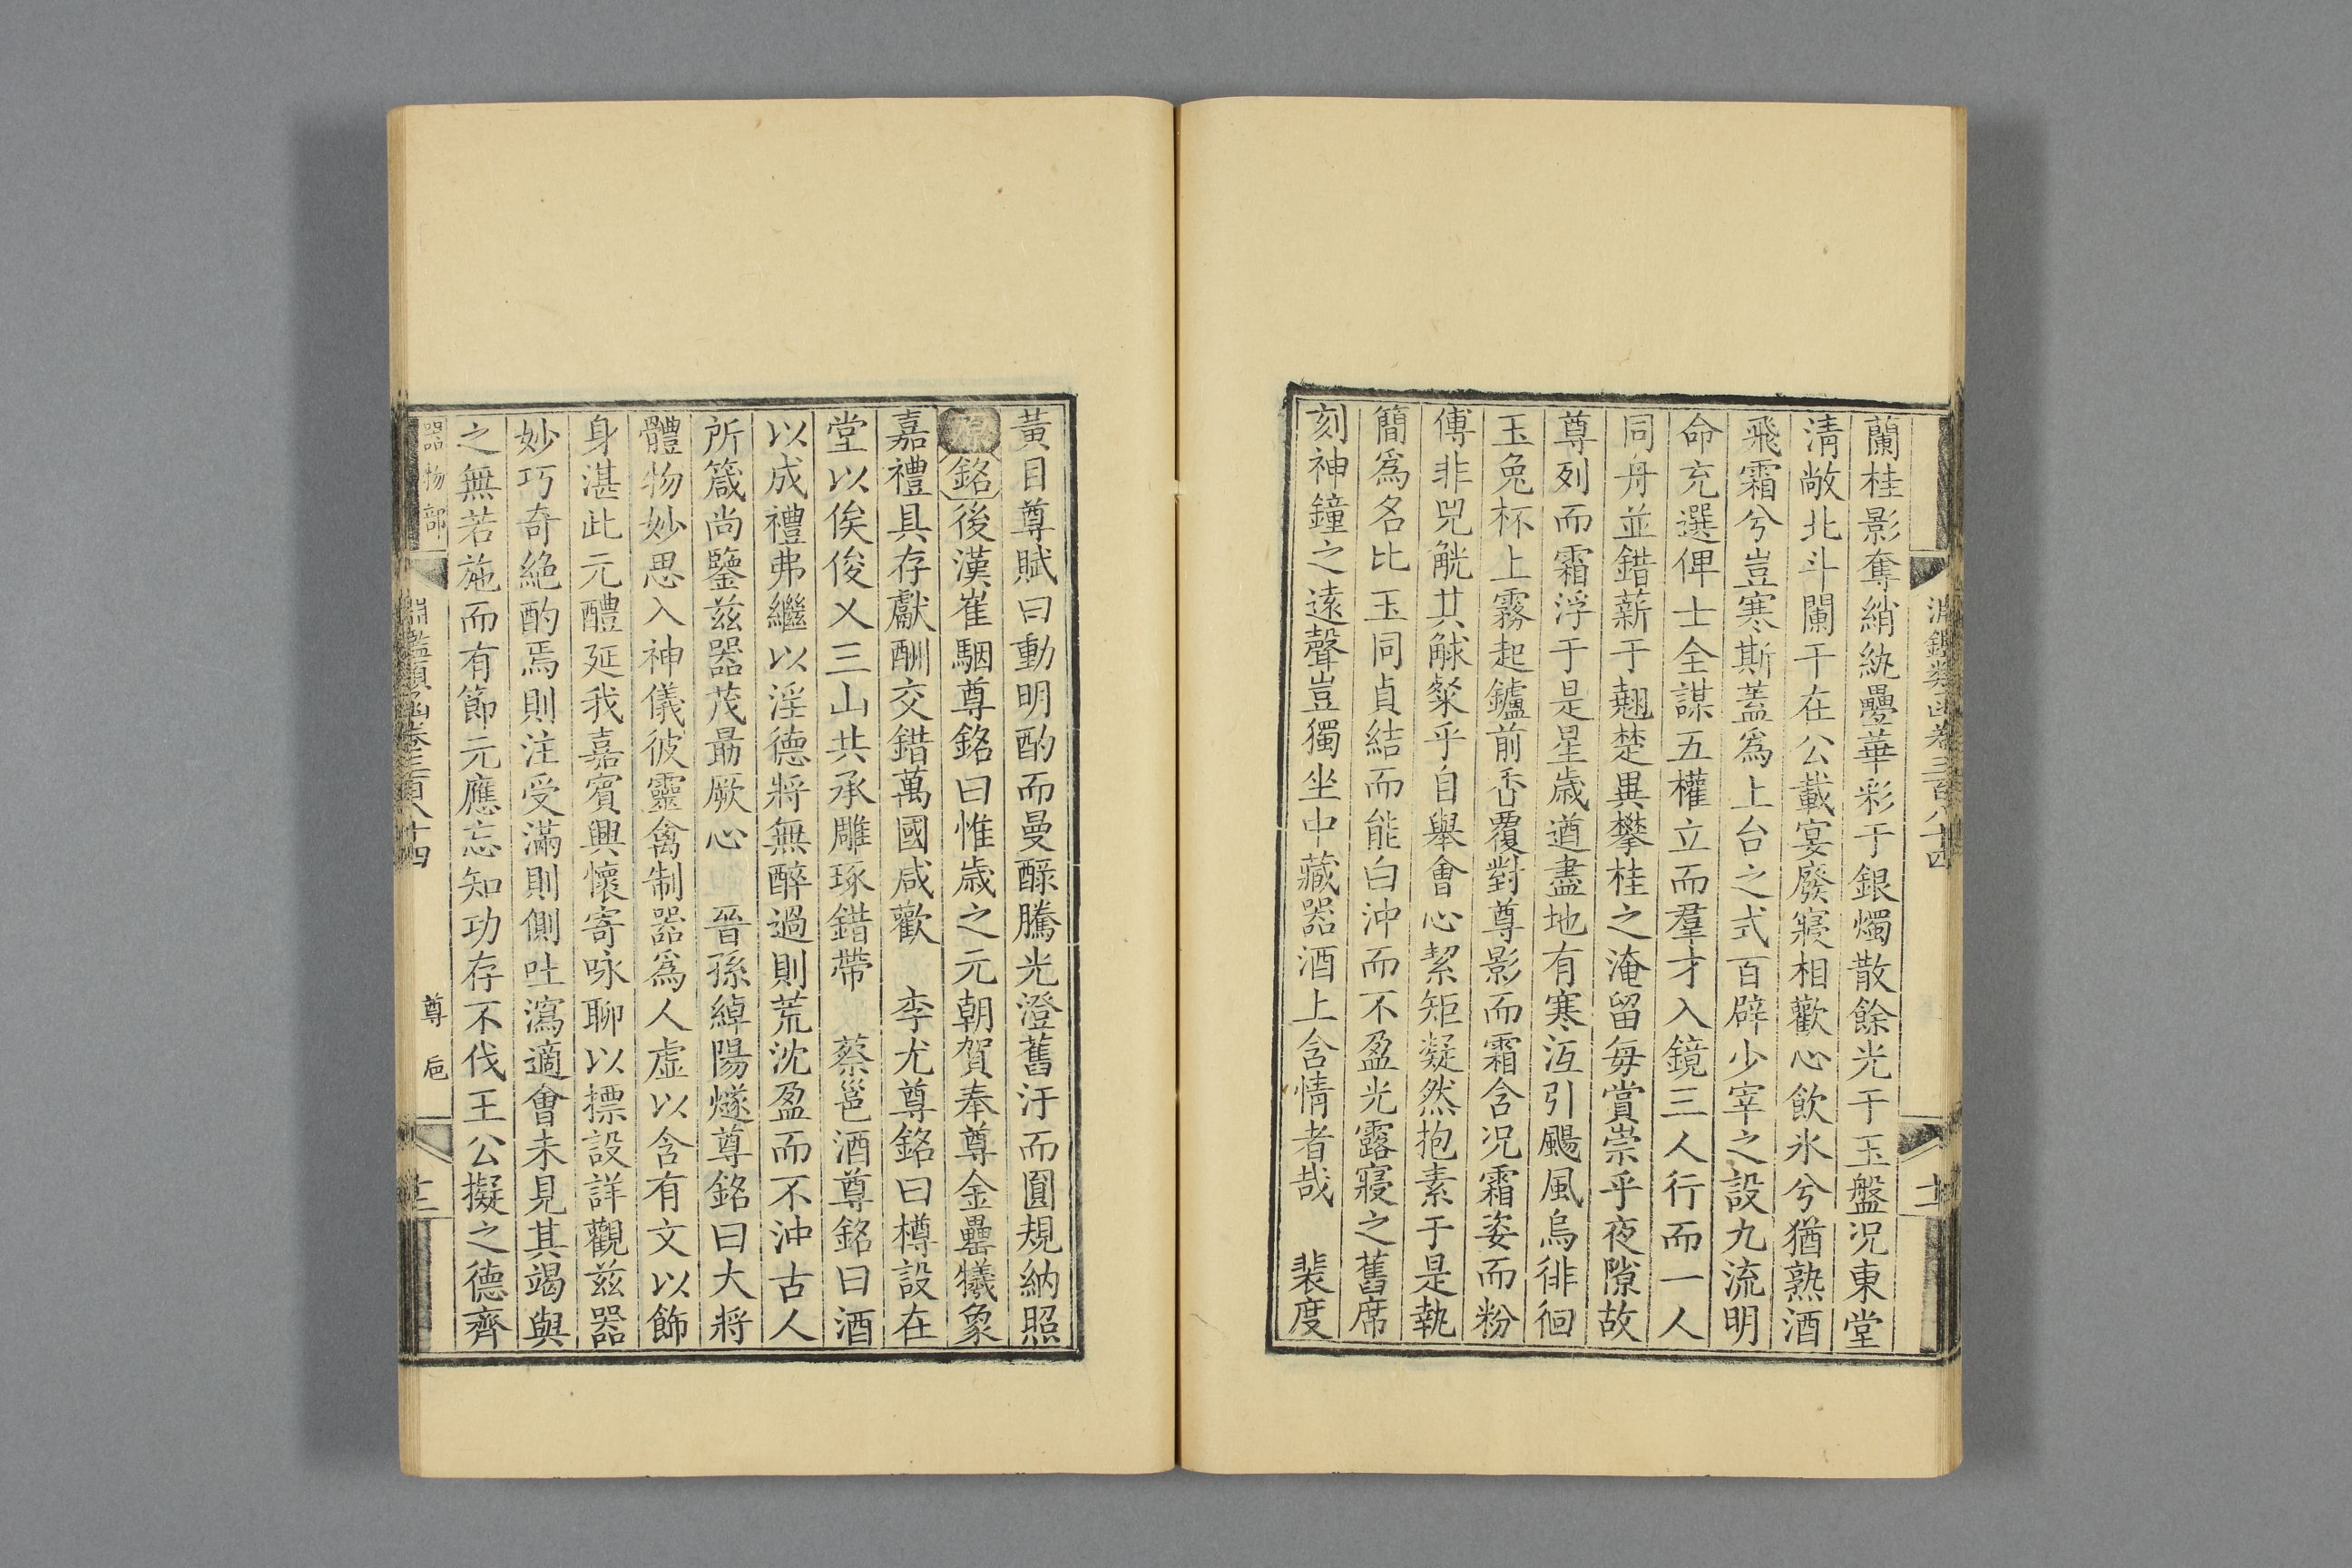 淵鑑類函卷三百八十四
十二
蘭桂影奪綃紈疊華彩于銀燭散餘光于玉盤況東堂
清敞北斗闌干在公載宴廢寢相歡心飲氷兮猶熟酒
飛霜兮豈寒斯蓋爲上台之式百辟少宰之設九流明
命充選俾士全謀五權立而羣才入鏡三人行而一人
同舟並錯薪于翹楚異攀桂之淹留每賞崇乎夜隙故
尊列而霜浮于是星歲遒盡地有寒沍引颺風烏徘徊
玉兔杯上霧起鑪前香覆對尊影而霜含況霜姿而粉
傅非兕觥其觩粲乎自舉會心絜矩凝然抱素于是執
簡爲名比玉同貞結而能白沖而不盈光露寢之舊席
刻神鐘之遠聲豈獨坐中藏器酒上含情者哉 裴度
黃目尊賦曰動明酌而曼醁騰光澄舊汙而圓規納照
原銘後漢崔駰尊銘曰惟歲之元朝賀奉尊金罍犧象
嘉禮具存獻酬交錯萬國咸歡 李尤尊銘曰樽設在
堂以俟俊乂三山共承雕琢錯帶 蔡邕酒尊銘曰酒
以成禮弗繼以淫德將無醉過則荒沈盈而不沖古人
所箴尚鑒茲器茂勗厥心 晉孫綽陽燧尊銘曰大將
體物妙思入神儀彼靈禽制器爲人虛以含有文以飾
身湛此元醴延我嘉賓興懷寄咏聊以摽設詳觀茲器
妙巧奇絶酌焉則注受滿則側吐瀉適會未見其竭與
之無若施而有節元應忘知功存不伐王公擬之德齊
器物部
淵鑑類函卷三百八十四
尊 巵
十三